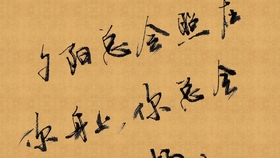 夕阳总会照在
你身上,你总会